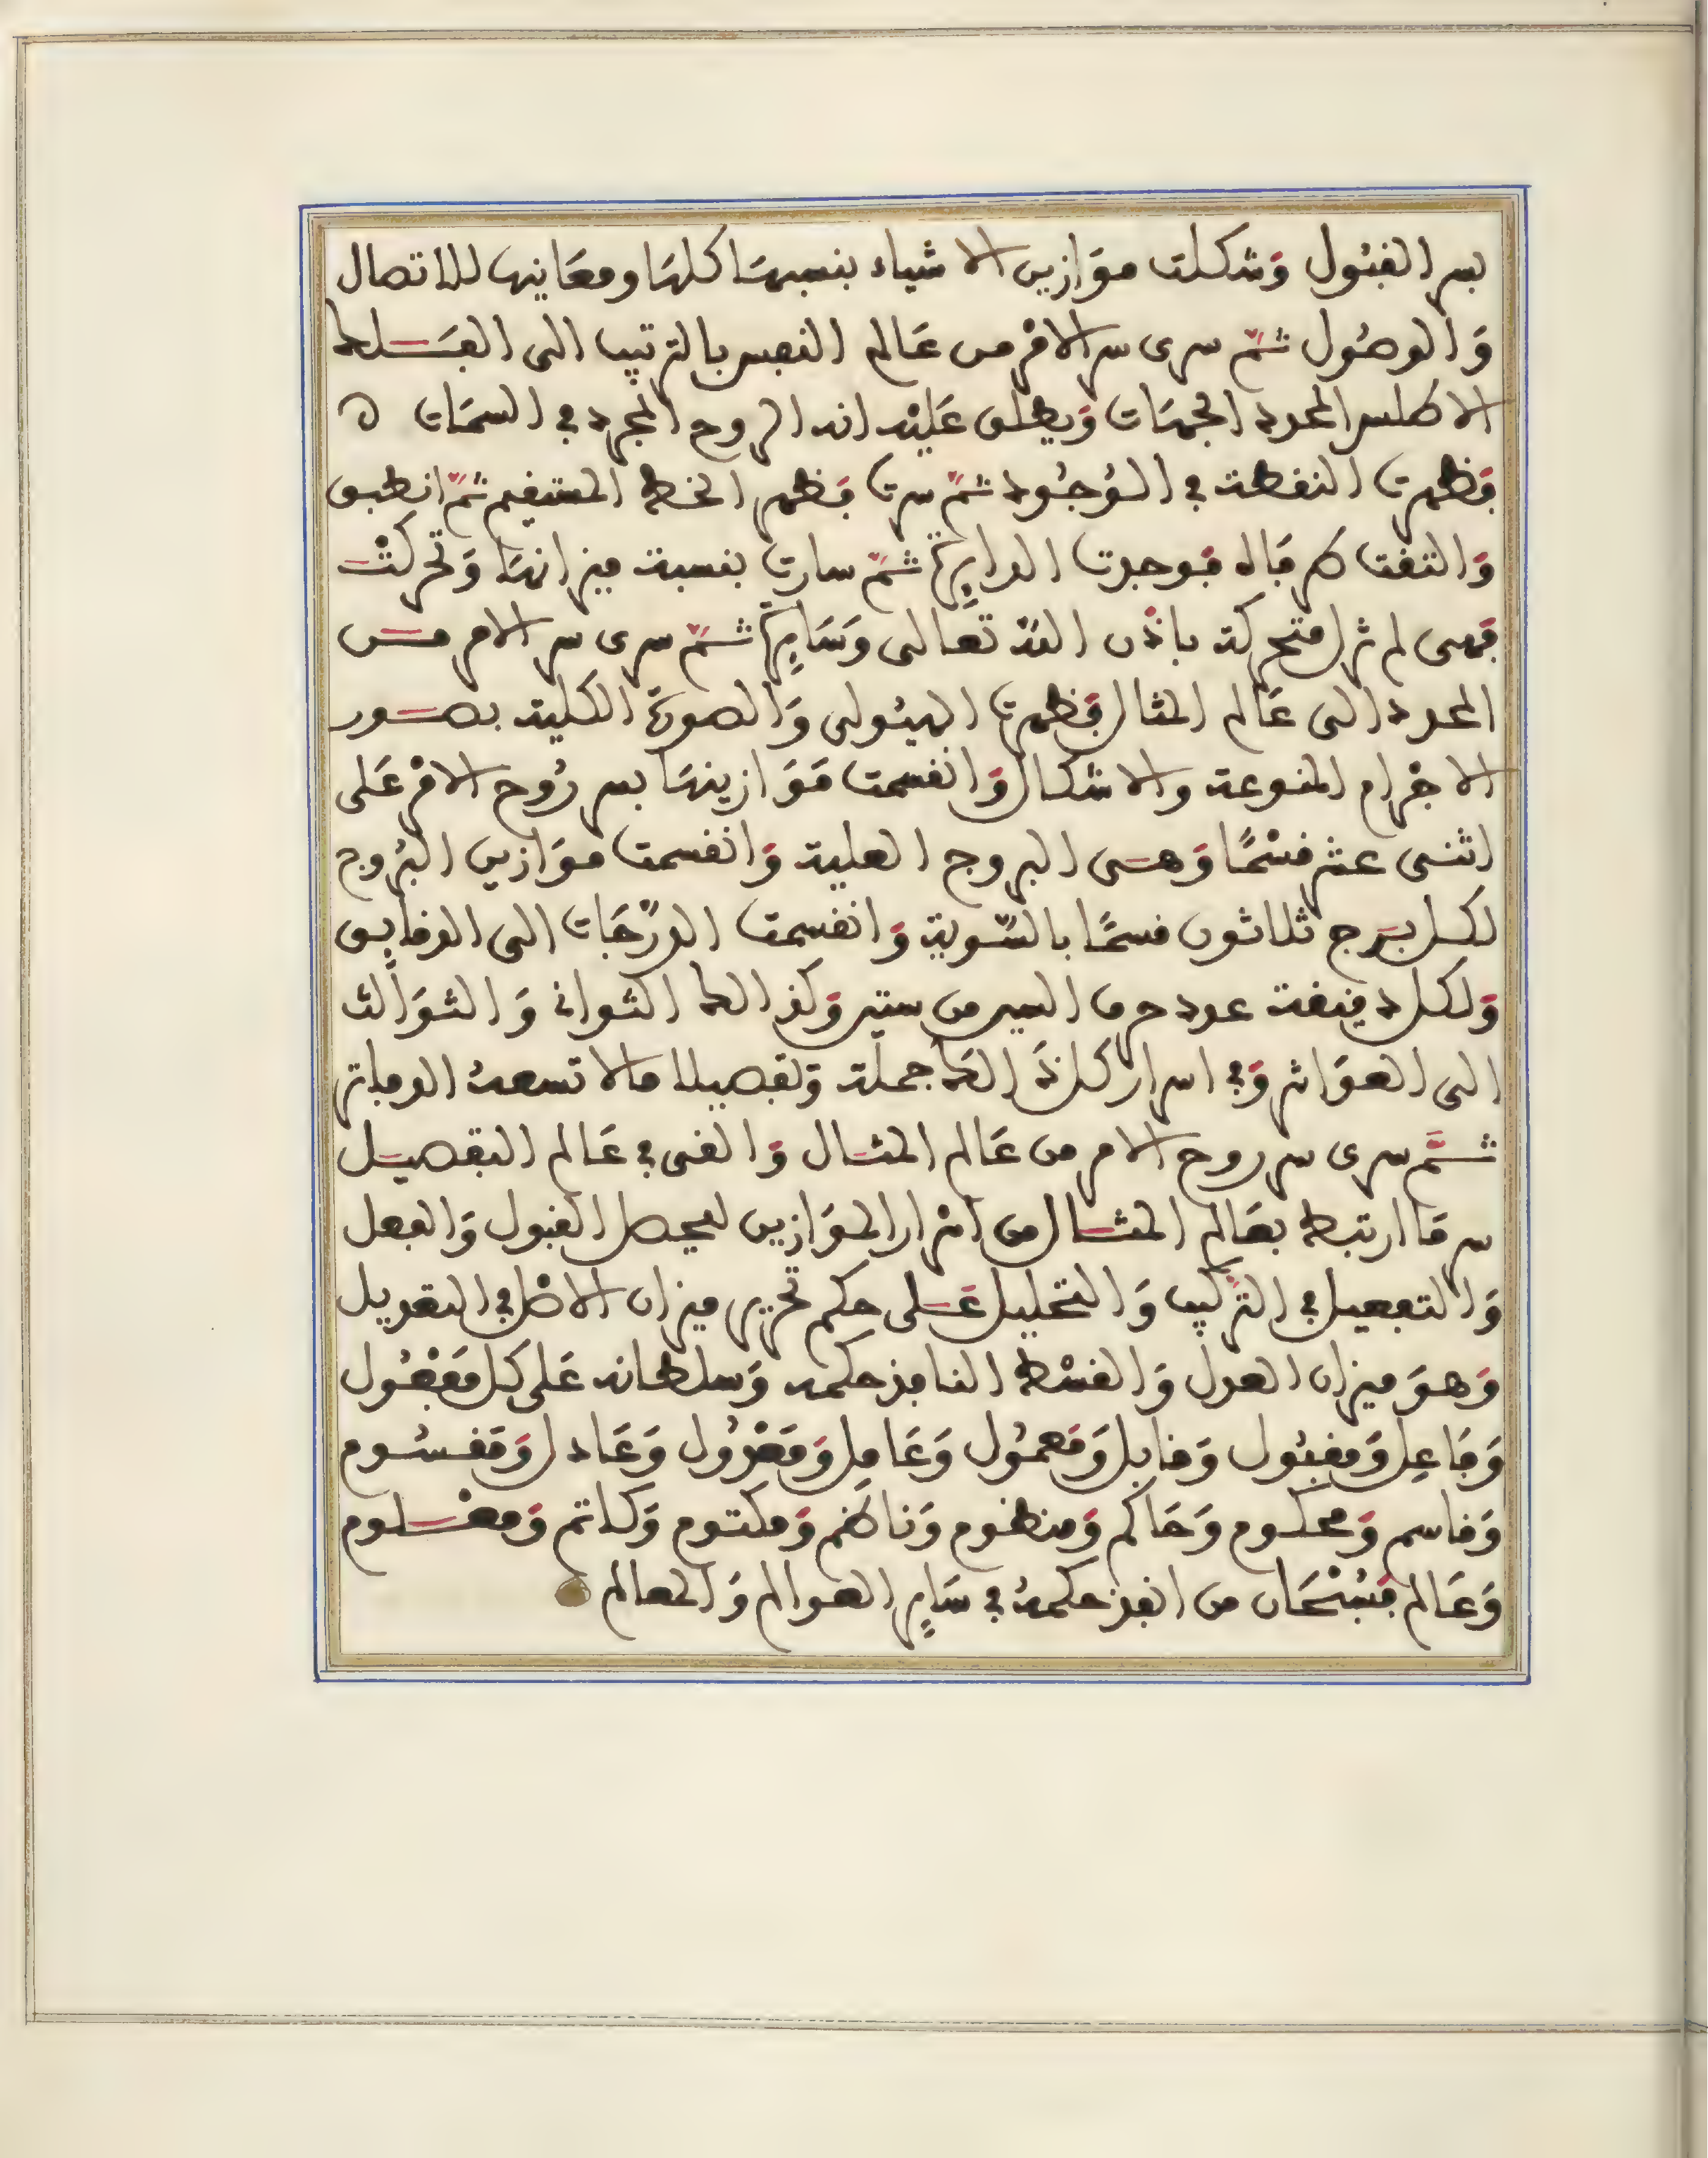 بسر القبول وشكلت موازين الاشياء بنسبها كلها ومعانيها للاتصال
وَالوصُول ثمّ سرى سر الامْر من عَالم النفس بالترتيب الى الفَلك
الاطلس المحدد الجهَات وَيطلق عَليْه انه الروح المجرد في السمَات ه
فَظهرت النقطة في الوُجُود ثمّ سرت فظهر الخط المستقيم ثمّ انطبق
وَالتقت طرفاه فوجدت الدايرةُ ثمّ سارت بنسبة ميزانهَا وَتحركتْ
فهى لم تزل متحركة باذن اللهْ تعَالى وَسَايرةٌ ثمّ سرى سر الامر من
المحدد الى عَالم المثال فَظهرت الهيُولى وَالصورة الكلية بصور
الاجْرام المنوعة والاشكال وَانقسمت مَوَازينهَا بسر رُوح الامْر عَلى
اثنى عشر قسْمًا وَهى البروج العلية وَانقسمت موَازين البُروج
لكل برج ثلاثون قسمًا بالسّوية وَانقسمت الدرَجَات الى الدقايق
وَلكل دقيقة عدد حرف السير من ستين وَكذالك الثواني وَالثوَالث
الى العوَاشر وَفي اسرار كل ذَالك جملة وَتفصيلا مالا تسعهُ الدفاتر
ثمَّ سرى سر روح الامر من عَالم المثال وَالقى في عَالم التفصيل
سر مَا ارتبط بعَالم المثال من اسْرار الموَازين ليحصل القبول وَالفعل
وَالتفصيل في التركيب وَالتحليل عَلى حكم تحرير ميزان الاصْل في التعديل
وَهوَ ميزان العدل وَالقسْط النافذ حكمه وَسلطانه عَلى كل مَفعُول
وَفَاعِل وَمقبُول وَقابل وَمَعمُول وَعَامِل وَمَعْدُول وَعَادل وَمَقسُوم
وَقاسم وَمحكوم وَحَاكم وَمنظوم وَنَاظم وَمكتوم وَكاتم وَمعْلوم
وَعَالم فسُبْحَان من انفذ حكمهُ في سَاير العوالم وَالمعالم